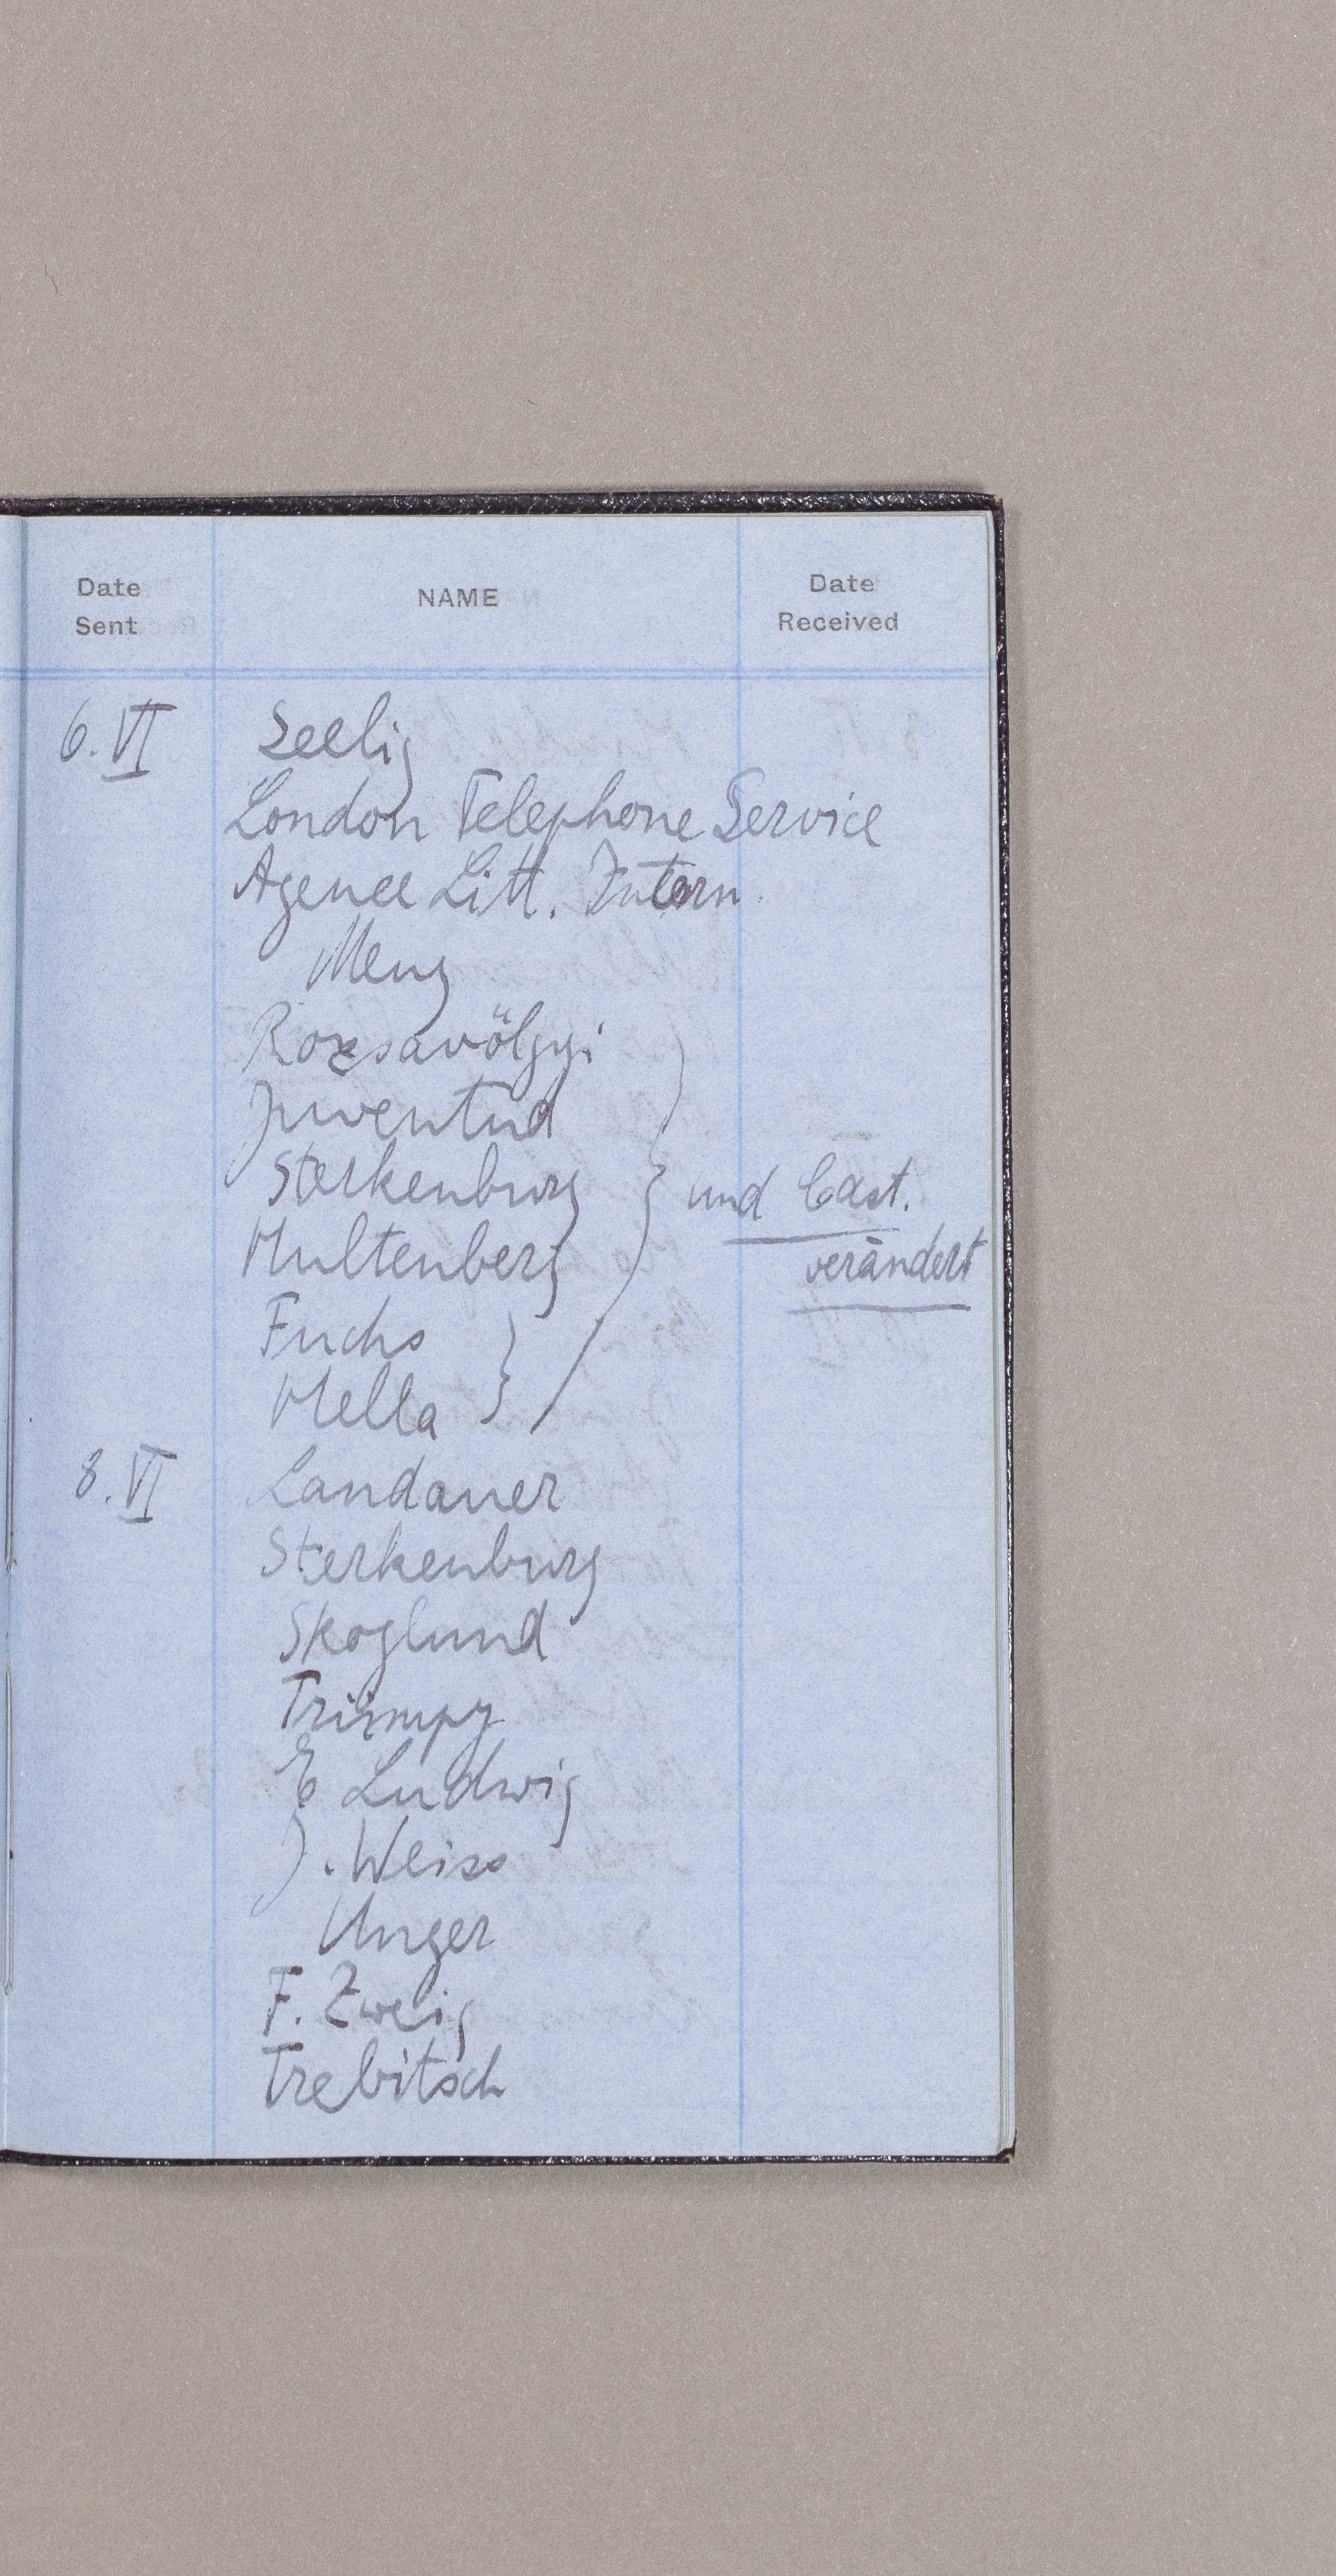 Date Sent NAME Date Received
6. VI Seelig
London Telephone Service
Agence Litt. Intern.
Meng
Rozsavölgyi
Juventud
Sterkenburg und Cast.
Hultenberg verändert
Fuchs
Hella
8. VI Landauer
Sterkenburg
Skoglund
Trümpy
E Ludwig
J. Weiss
Unger
F. Zweig
Trebitsch